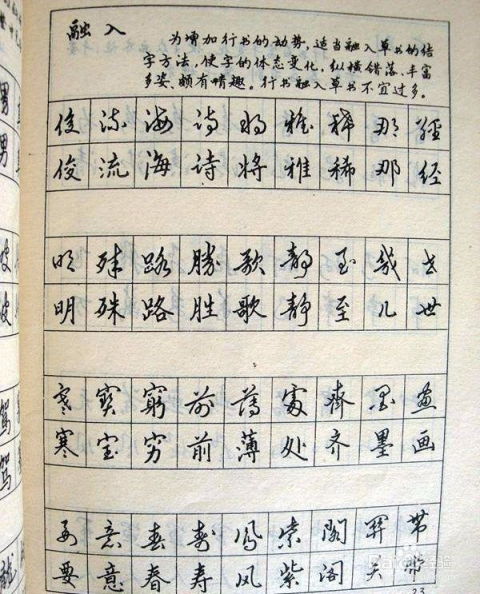 融入
为增加行书的动势，适当融入草书的结
字方法，使字的体态变化，纵横错落、丰富
多姿、颇有情趣。行书融入草书不宜过多。
俊 流 海 诗 将 雅 稀 那 經
俊 流 海 诗 将 雅 稀 那 经
明 殊 路 勝 歌 静 至 幾 世
明 殊 路 胜 歌 静 至 儿 世
寒 寶 窮 前 薄 處 齊 墨 畫
寒 宝 穷 前 薄 处 齐 墨 画
要 意 春 壽 鳳 紫 閣 關 带
要 意 春 寿 凤 紫 阁 关 带
23